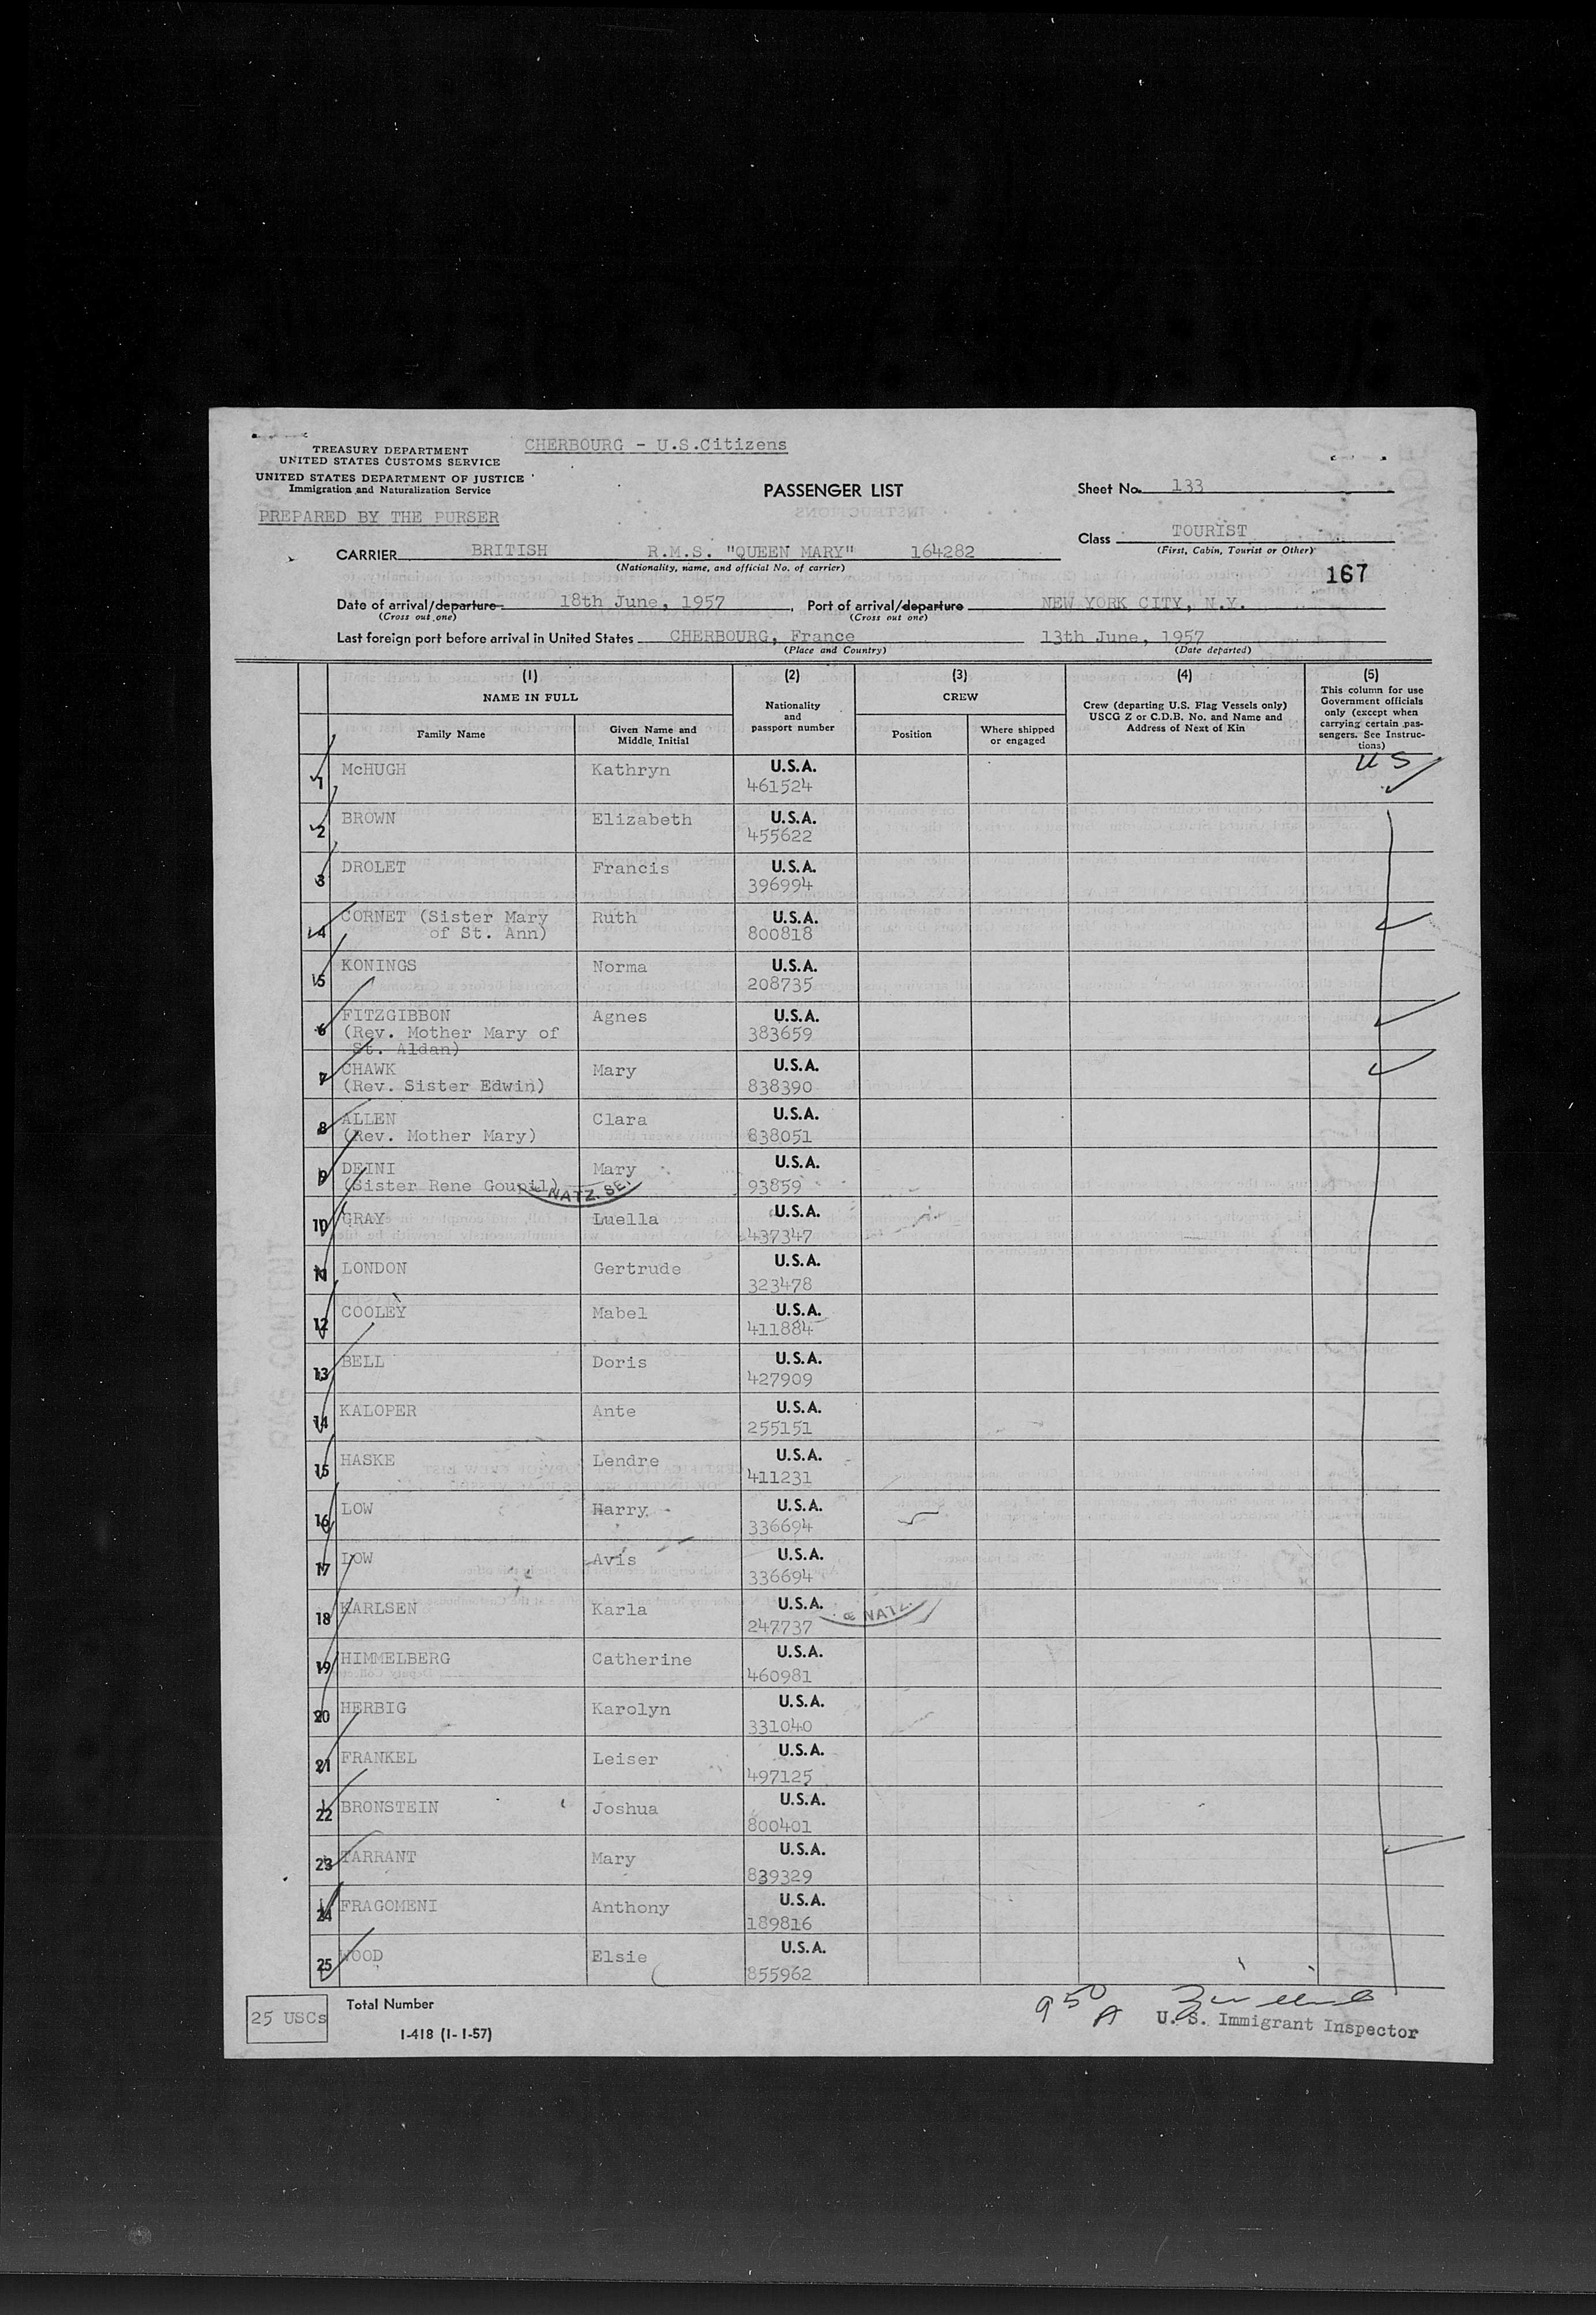 CHERBOURG - U.S.Citizens
TREASURY DEPARTMENT
UNITED STATES CUSTOMS SERVICE
UNITED STATES DEPARTMENT OF JUSTICE
Immigration and Naturalization Service
PASSENGER LIST
Sheet No. 133
PREPARED BY THE PURSER
Class TOURIST
(First, Cabin, Tourist or Other)
CARRIER BRITISH R.M.S. "QUEEN MARY" 164282
(Nationality, name, and official No. of carrier)
167
Date of arrival/departure 18th June, 1957, Port of arrival/departure NEW YORK CITY, N.Y.
(Cross out one) (Cross out one)
Last foreign port before arrival in United States CHERBOURG, France 13th June, 1957
(Place and Country) (Date departed)
(1) (2) (3) (4) (5)
NAME IN FULL
Nationality
and
passport number
CREW
Crew (departing U.S. Flag Vessels only)
USCG Z or C.D.B. No. and Name and
Address of Next of Kin
This column for use
Government officials
only (except when
carrying certain pas-
sengers. See Instruc-
tions)
Family Name
Given Name and
Middle Initial
Position
Where shipped
or engaged
US
1 McHUGH Kathryn U.S.A.
461524
2 BROWN Elizabeth U.S.A.
455622
3 DROLET Francis U.S.A.
396994
4 CORNET (Sister Mary Ruth U.S.A.
of St. Ann) 800818
5 KONINGS Norma U.S.A.
208735
6 FITZGIBBON Agnes U.S.A.
(Rev. Mother Mary of 383659
St. Aldan)
7 CHAWK Mary U.S.A.
(Rev. Sister Edwin) 838390
8 ALLEN Clara U.S.A.
(Rev. Mother Mary) 838051
9 DEINI Mary U.S.A.
(Sister Rene Goupil) 93859
NATZ. SE.
10 GRAY Luella U.S.A.
437347
11 LONDON Gertrude U.S.A.
323478
12 COOLEY Mabel U.S.A.
411884
13 BELL Doris U.S.A.
427909
14 KALOPER Ante U.S.A.
255151
15 HASKE Lendre U.S.A.
411231
16 LOW Harry U.S.A.
336694
17 LOW Avis U.S.A.
336694
18 KARLSEN Karla U.S.A.
247737
& NATZ.
19 HIMMELBERG Catherine U.S.A.
460981
20 HERBIG Karolyn U.S.A.
331040
21 FRANKEL Leiser U.S.A.
497125
22 BRONSTEIN Joshua U.S.A.
800401
23 TARRANT Mary U.S.A.
839329
24 FRAGOMENI Anthony U.S.A.
189816
25 WOOD Elsie U.S.A.
855962
25 USCs
Total Number
I-418 (1-1-57)
9 50 A
U. S. Immigrant Inspector